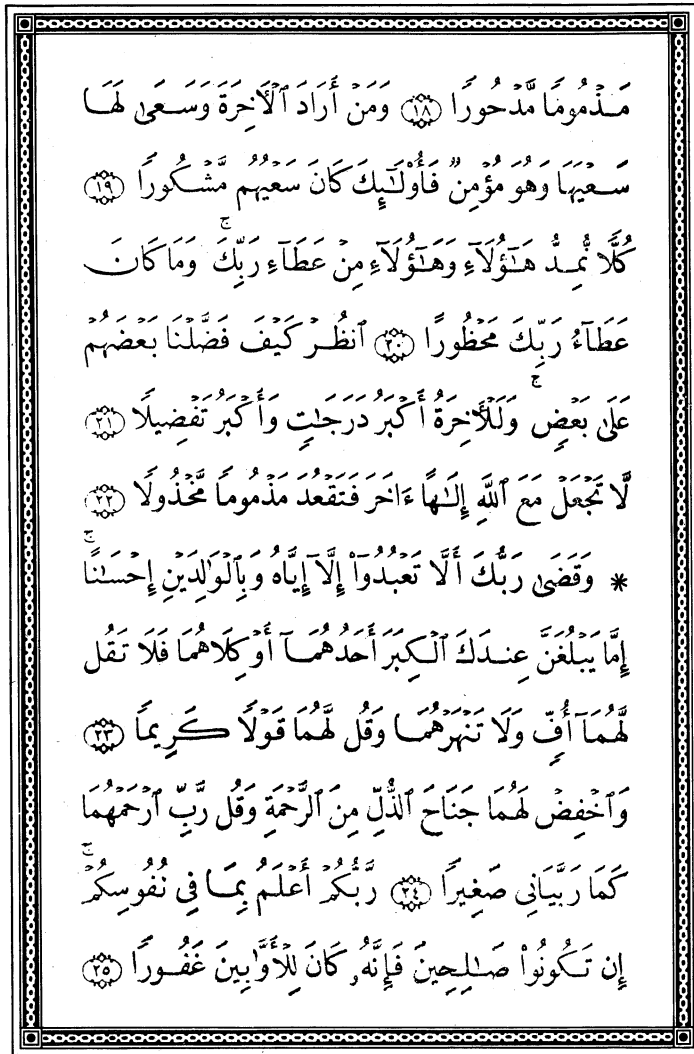 مَذْمُومًا مَّدْحُورًا ﴿١٨﴾ وَمَنْ أَرَادَ ٱلْأَخِرَةَ وَسَعَىٰ لَهَا
سَعْيَهَا وَهُوَ مُؤْمِنٌ فَأُوْلَـٰٓئِكَ كَانَ سَعْيُهُم مَّشْكُورًا ﴿١٩﴾
كُلًّا نُّمِدُّ هَـٰٓؤُلَآءِ وَهَـٰٓؤُلَآءِ مِنْ عَطَآءِ رَبِّكَ ۚ وَمَا كَانَ
عَطَآءُ رَبِّكَ مَحْظُورًا ﴿٢٠﴾ ٱنظُرْ كَيْفَ فَضَّلْنَا بَعْضَهُمْ
عَلَىٰ بَعْضٍ ۚ وَلَلْأَخِرَةُ أَكْبَرُ دَرَجَـٰتٍ وَأَكْبَرُ تَفْضِيلًا ﴿٢١﴾
لَّا تَجْعَلْ مَعَ ٱللَّهِ إِلَـٰهًا ءَاخَرَ فَتَقْعُدَ مَذْمُومًا مَّخْذُولًا ﴿٢٢﴾
* وَقَضَىٰ رَبُّكَ أَلَّا تَعْبُدُوٓاْ إِلَّآ إِيَّاهُ وَبِٱلْوَٰلِدَيْنِ إِحْسَـٰنًا ۚ
إِمَّا يَبْلُغَنَّ عِندَكَ ٱلْكِبَرَ أَحَدُهُمَآ أَوْ كِلَاهُمَا فَلَا تَقُل
لَّهُمَآ أُفٍّ وَلَا تَنْهَرْهُمَا وَقُل لَّهُمَا قَوْلًا كَرِيمًا ﴿٢٣﴾
وَٱخْفِضْ لَهُمَا جَنَاحَ ٱلذُّلِّ مِنَ ٱلرَّحْمَةِ وَقُل رَّبِّ ٱرْحَمْهُمَا
كَمَا رَبَّيَانِى صَغِيرًا ﴿٢٤﴾ رَّبُّكُمْ أَعْلَمُ بِمَا فِى نُفُوسِكُمْ ۚ
إِن تَكُونُواْ صَـٰلِحِينَ فَإِنَّهُۥ كَانَ لِلْأَوَّٰبِينَ غَفُورًا ﴿٢٥﴾